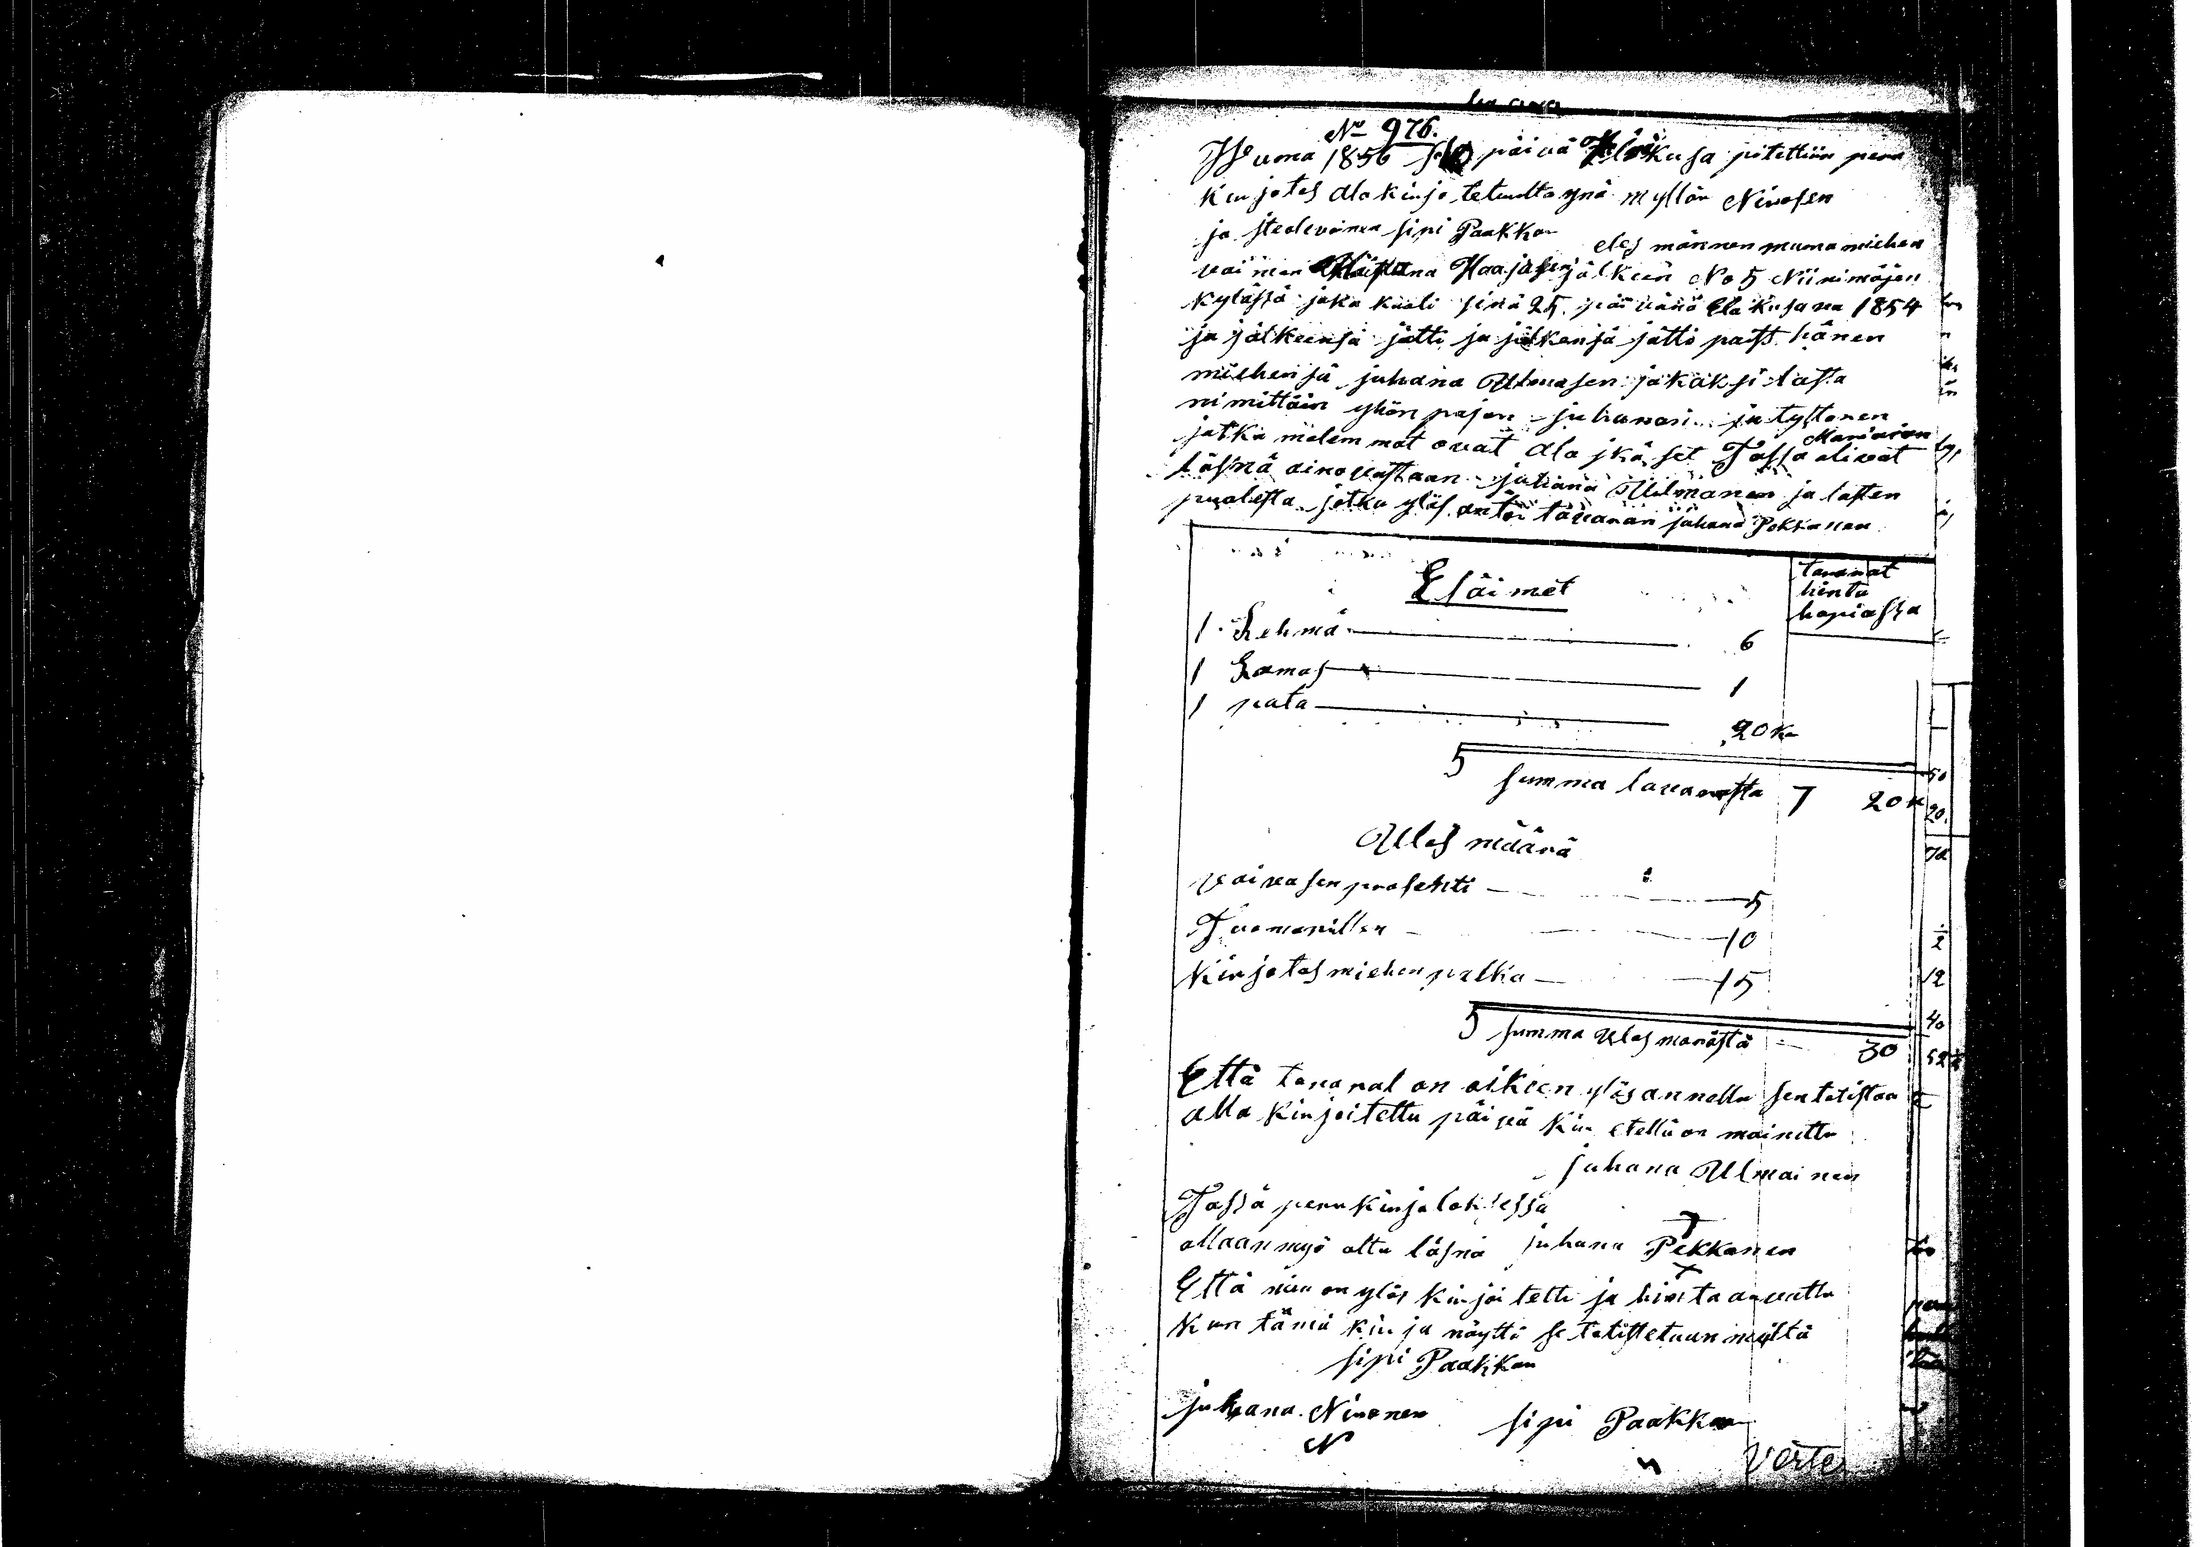 No 976.
Wuona 1856 päivä Elokusa pitettiin peru
kirjotos ala kirjo tetuulta ynä myllän Nivosen
ja Sipi Paakkon
eles männen muna miehen
vaimon Haajasen jälkeen No 5 Niinimäjen
kylässä joka kuoli sinä 25 päivänä Elokusa na 1854
ja jälkeensä jätti ja jälkensä jätti paitsi hänen
miehensä juhana Ulmasen ja kaksi lasta
nimittäin yhen pojan juhanan ja tyttären
Marian
jotka molemmat ovat ala ikäset Tässä olivat
läsnä aino vastaan juhana Ulmanen ja lasten
puolesta jotka ylös antoi tavaran juhana Pekkanen
Eläimet
tavarat
hinta
hopiassa
1 Lehmä 6
1 Lamas 1
1 pata 20 k
S summa tavarasta 7 20 k
Ulos määrä
vaivasen prosentti 5
Tuomarillen 10
Kirjotos miehen palka 15
S summa Ulos marästä 30
Että tavarat on oikien ylösannettu sen totistaa
alla kirjoitettu päivä kin etellä on mainittu
juhana Ulmainen
Tässä peru kirjatoksessa
ollaan myö oltu läsnä juhana Pekkanen
Että niin on ylös kirjoi tettu ja hinta arvattu
kun tämä kirja näyttä se totistetaan meiltä
Sipi Paakkon
juhana Nivonen Sipi Paakkon
N
Verte